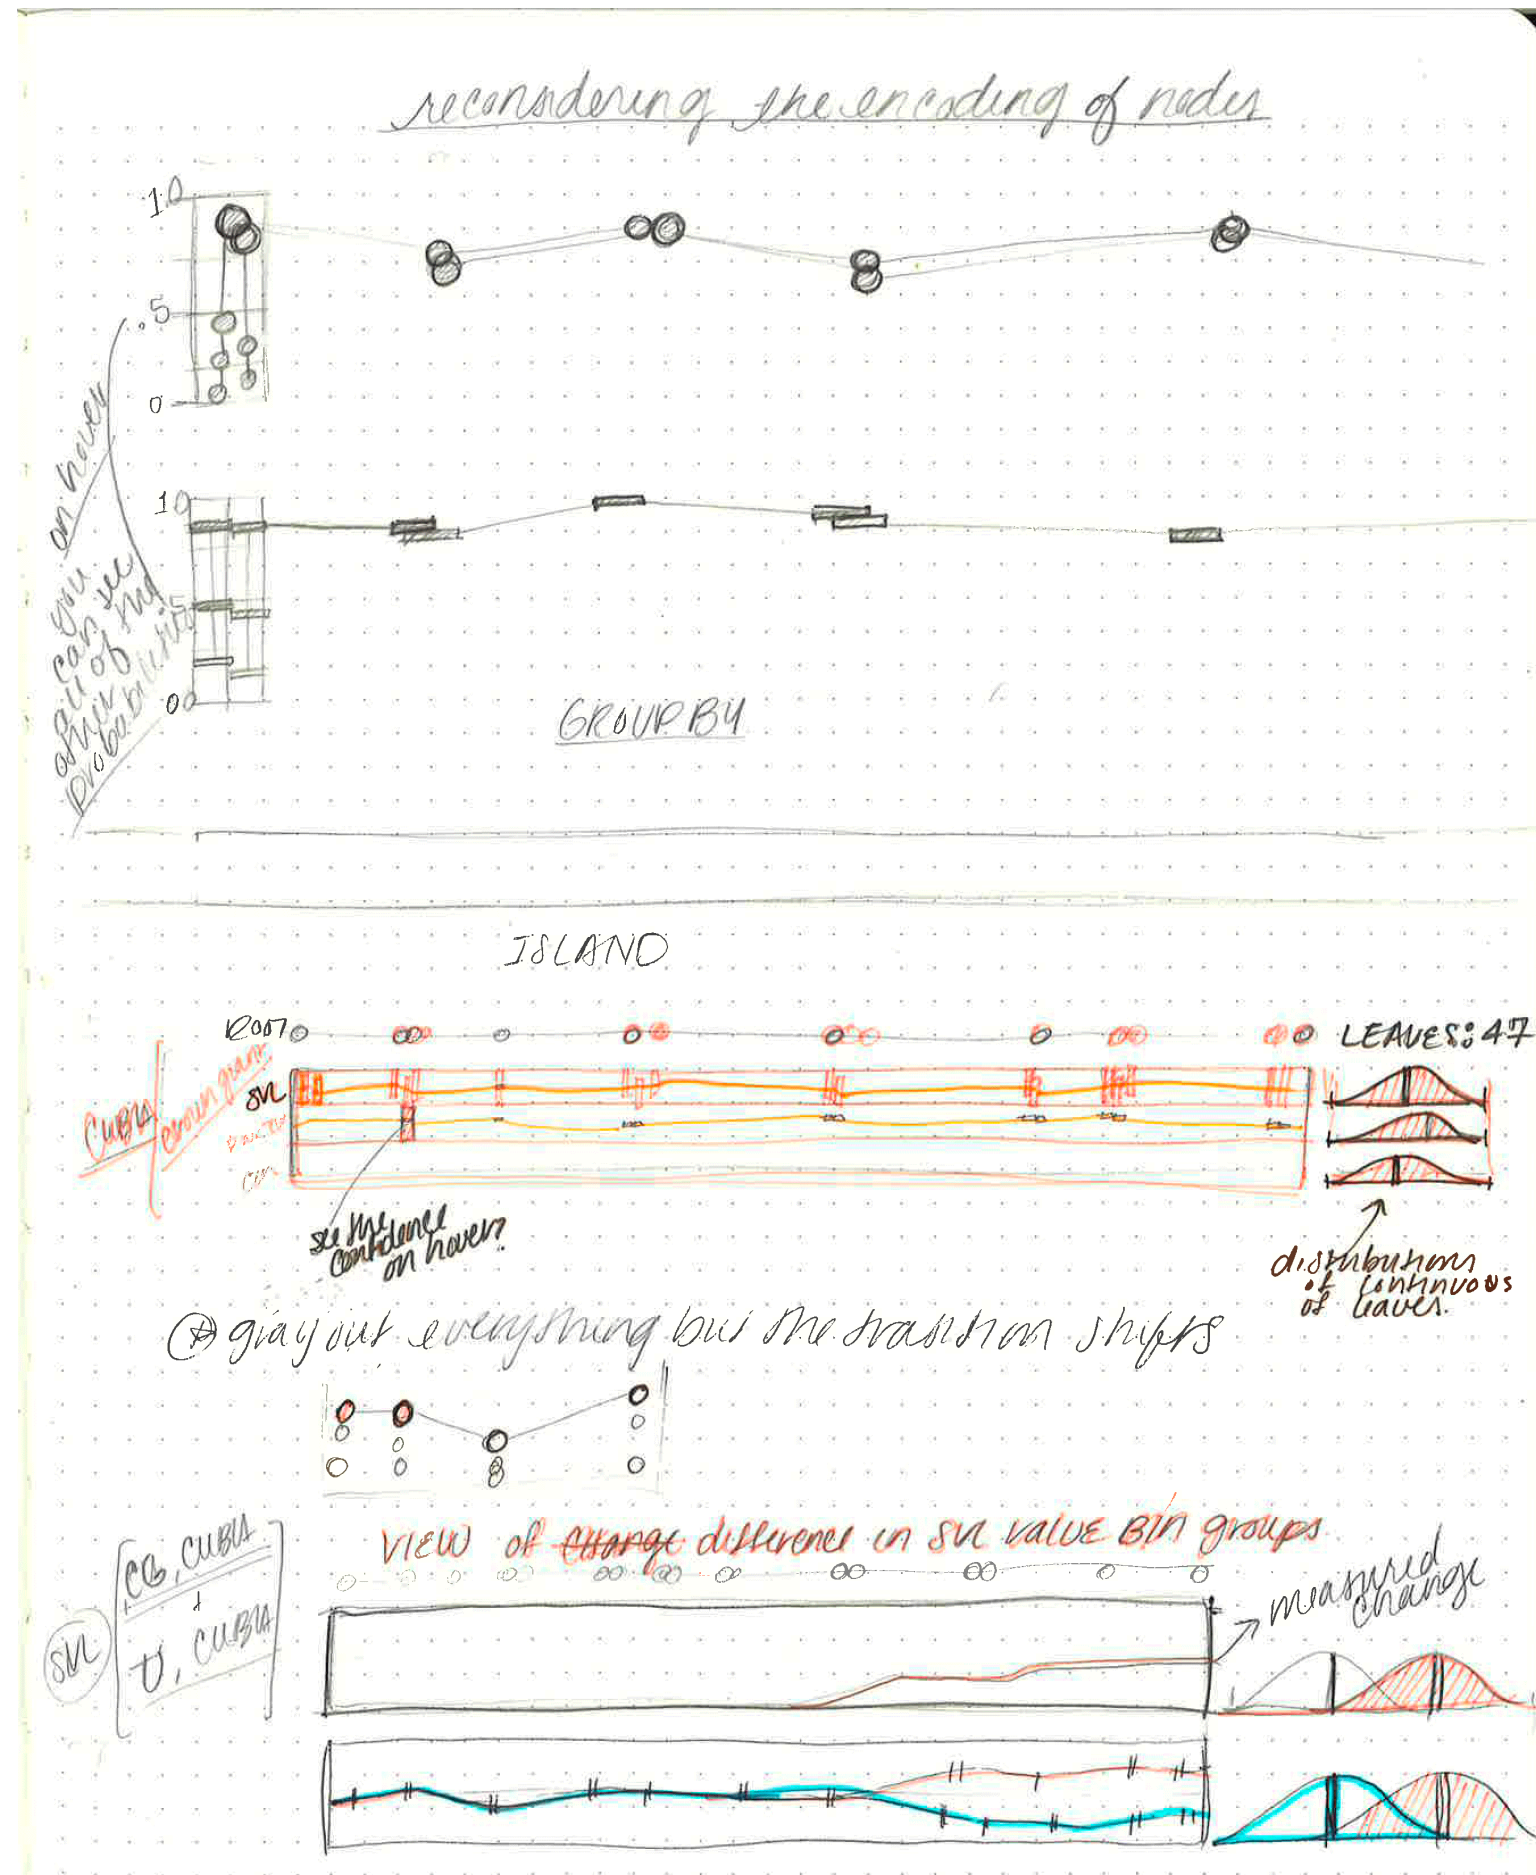 reconsidering the encoding of nodes
1.0
.5
0
on hover
you
can see
all of the
other
probabilities
1.0
.5
00
GROUP BY
ISLAND
ROOT
LEAVES: 47
CUBIA/
crown giant
SVL
see the
confidence
on hover?
distributions
of continuous
of leaves.
gray out everything but the transition shifts
VIEW of change difference in SVL value BIN groups
measured
change
SVL
CG, CUBIA
+
U, CUBIA